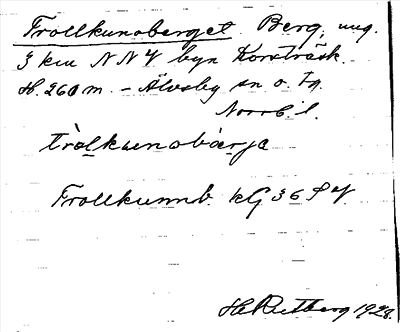 Trollkunoberget. Berg, ung.
3 km NNV byn Korsträsk.
H. 260 m. – Älvsby sn o. tg.
Norrb. l.
tròlkunobärje
Trollkunnb. kG 36
H Rutberg 1928.